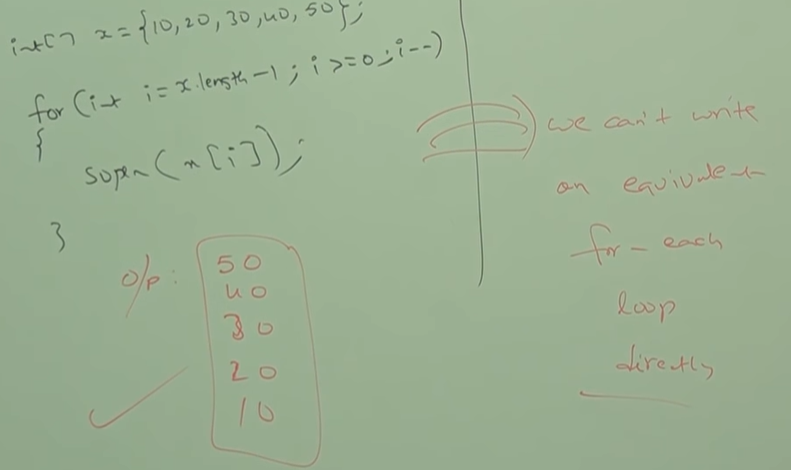 int[] x = {10,20,30,40,50};
for(int i=x.length-1; i>=0; i--)
{
sopln(x[i]);
}
o/p:
50
40
30
20
10
we can't write
an equivalent
for-each
loop
directly